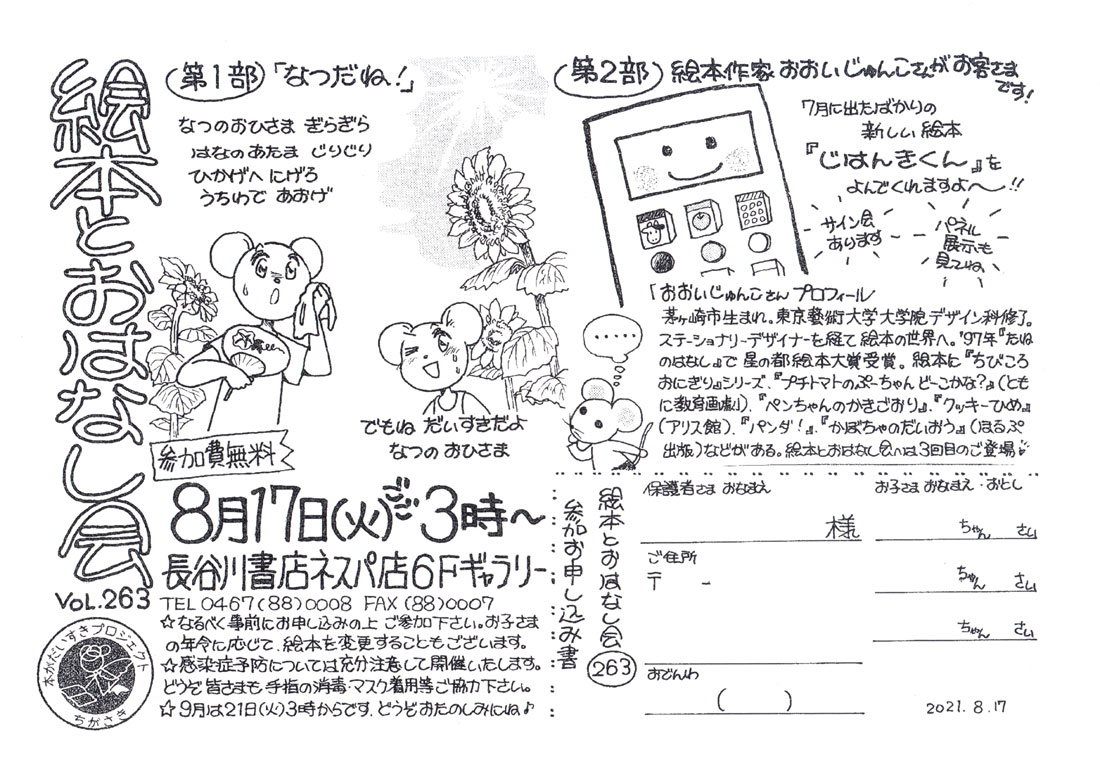 絵本とおはなし会
VOL.263
本がだいすきプロジェクト
ちがさき
第1部「なつだね!」
なつのおひさま ぎらぎら
はなのあたま じりじり
ひかげへ にげろ
うちわで あおげ
でもね だいすきだよ
なつの おひさま
参加費無料
8月17日(火)ごご3時~
長谷川書店ネスパ店6Fギャラリー
TEL 0467(88)0008 FAX(88)0007
☆なるべく事前にお申し込みの上 ご参加下さい。お子さま
の年令に応じて、絵本を変更することもございます。
☆感染症予防については充分注意して開催いたします。
どうぞ皆さまも手指の消毒・マスク着用等ご協力下さい。
☆9月は21日(火)3時からです。どうぞおたのしみにね♪
第2部 絵本作家 おおいじゅんこさんがお客さま
です!
7月に出たばかりの
新しい絵本
『じはんきくん』を
よんでくれますよ~!!
サイン会
あります
パネル
展示も
見てね
「おおいじゅんこさん プロフィール
茅ヶ崎市生まれ。東京藝術大学大学院デザイン科修了。
ステーショナリーデザイナーを経て絵本の世界へ。'97年『たね
のはなし』で 星の都絵本大賞受賞。絵本に『ちびころ
おにぎり』シリーズ、『プチトマトのぷーちゃん どーこかな?』(とも
に教育画劇)、『ペンちゃんのかきごおり』、『クッキーひめ』
(アリス館)、『パンダ!』、『かぼちゃのだいおう』(ほるぷ
出版)などがある。絵本とおはなし会へは3回目のご登場♪
絵本とおはなし会 263
参加お申し込み書
保護者さま おなまえ
様
お子さま おなまえ・おとし
ちゃん さい
ちゃん さい
ちゃん さい
ご住所
〒 -
おでんわ
( )
2021.8.17